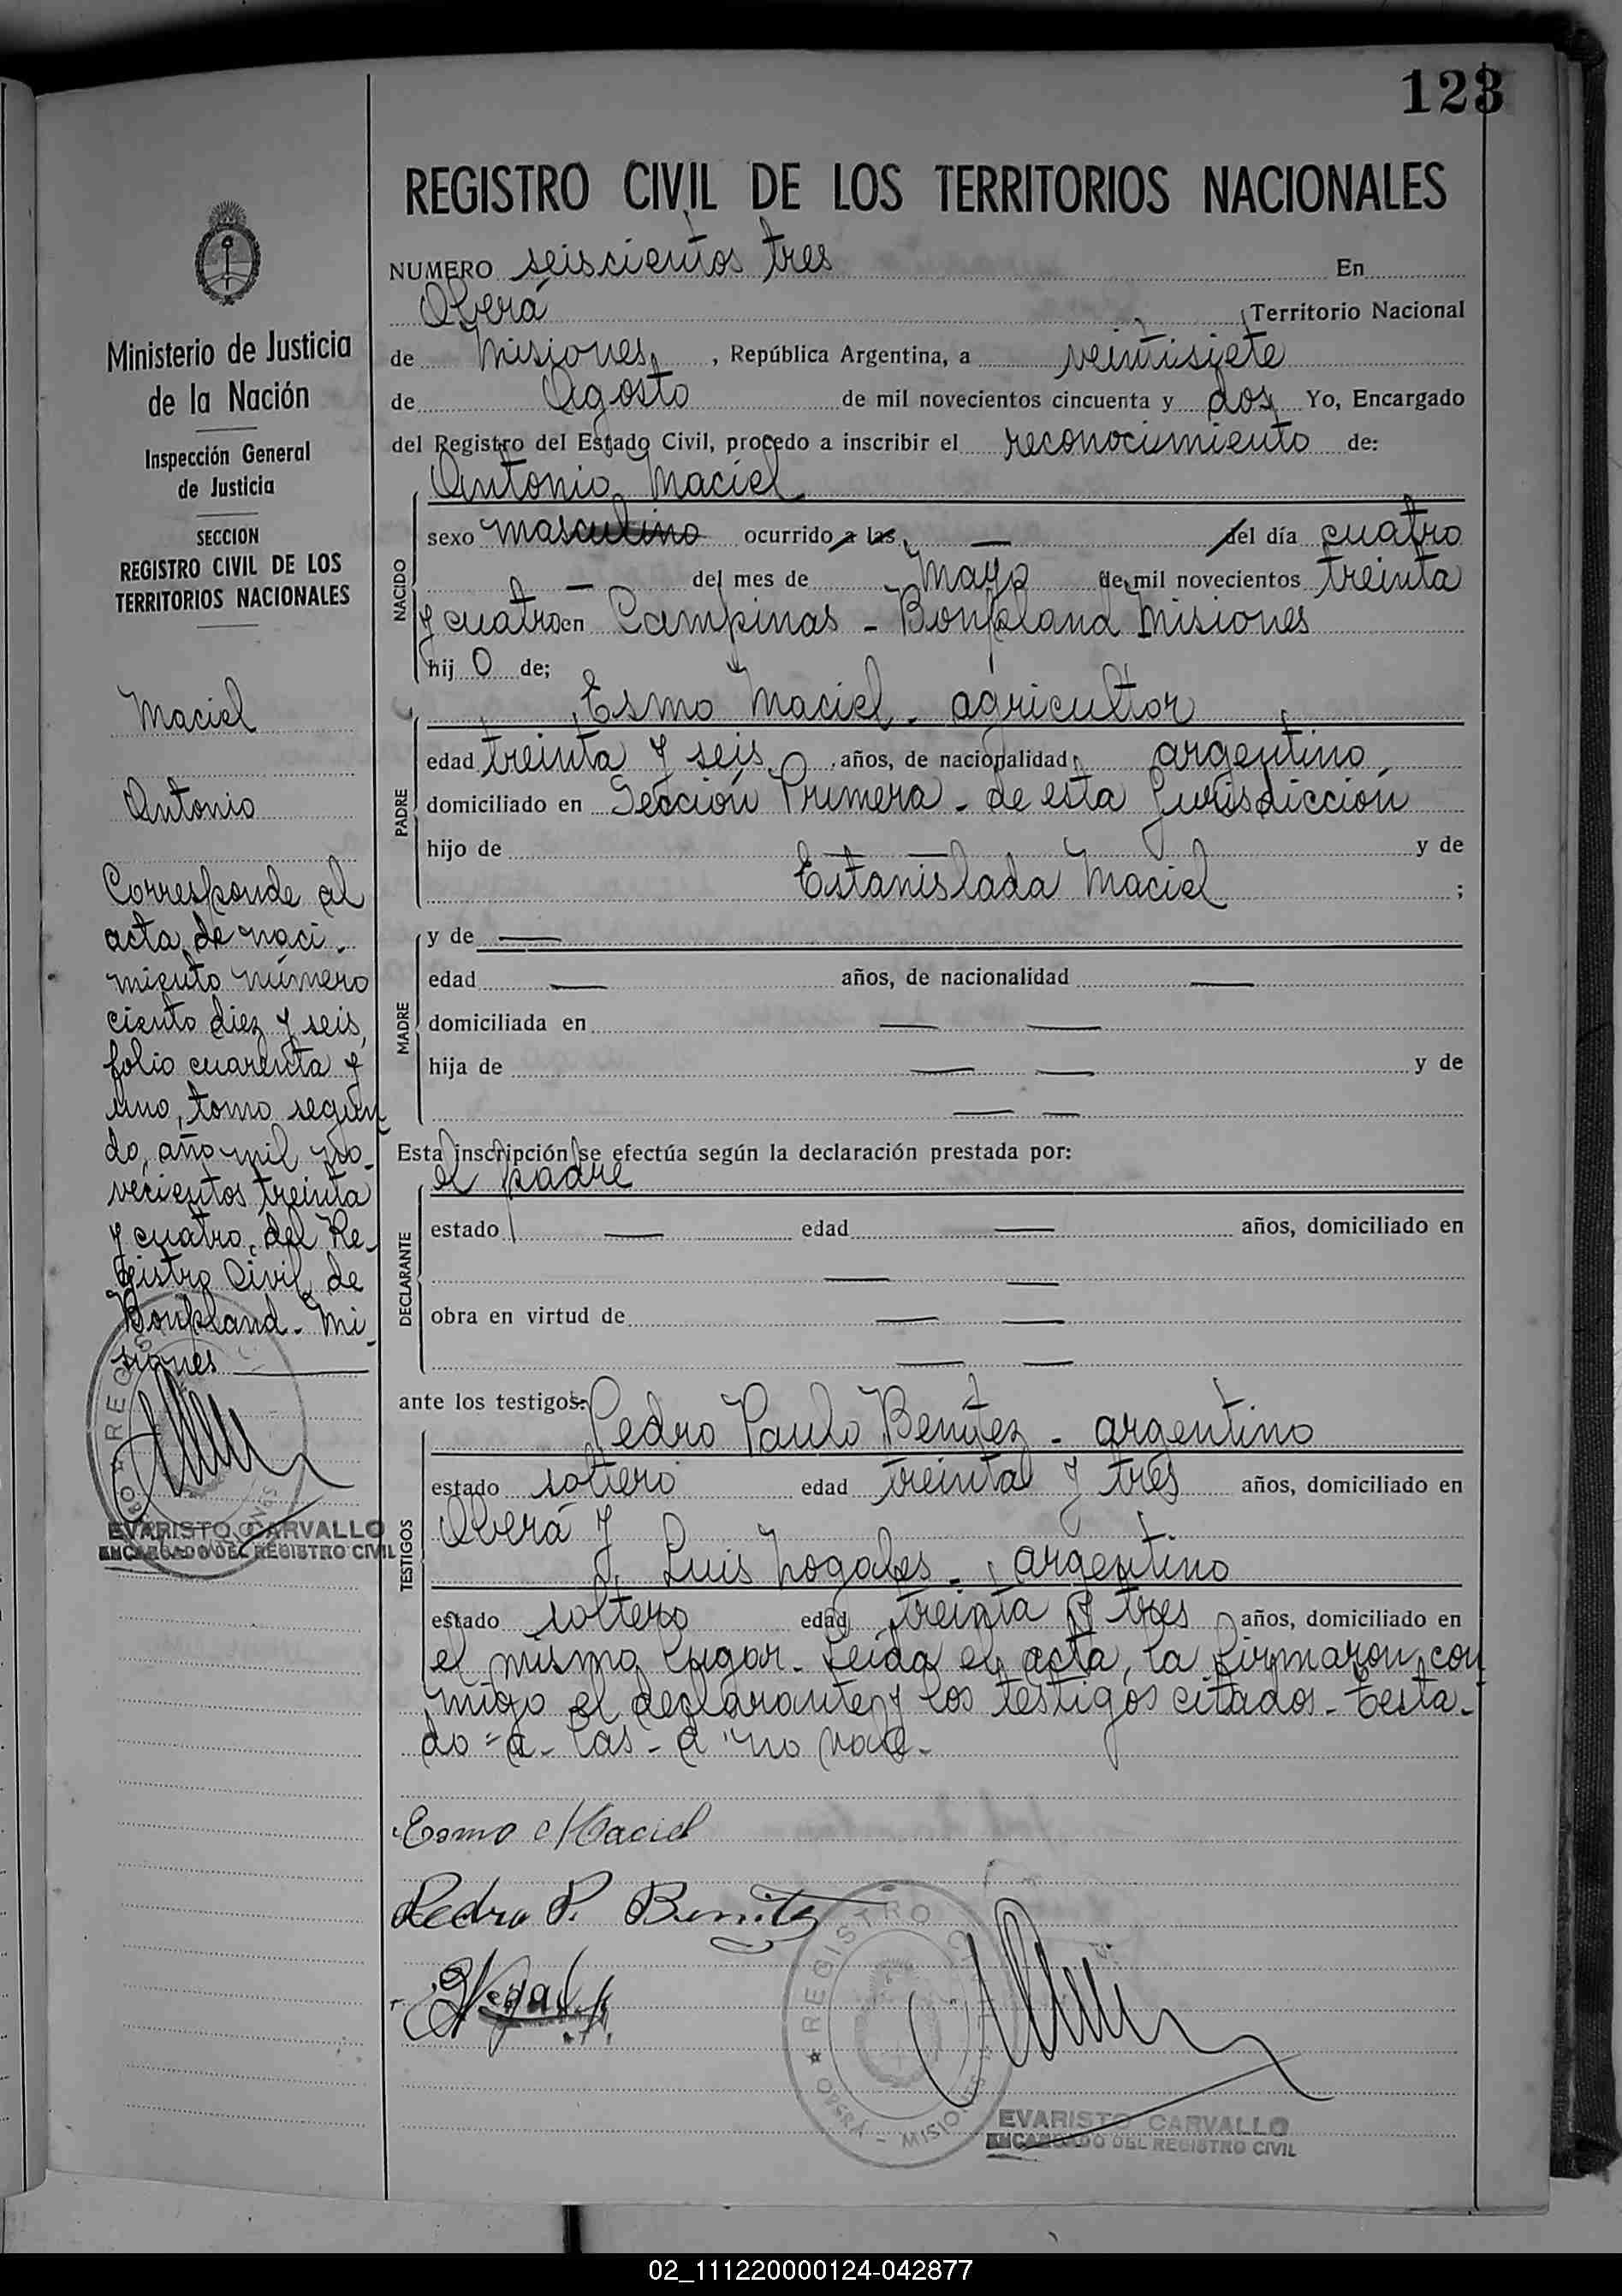 123
REGISTRO CIVIL DE LOS TERRITORIOS NACIONALES
NUMERO seiscientos tres En
Oberá Territorio Nacional
de Misiones, República Argentina, a veintisiete
de Agosto de mil novecientos cincuenta y dos Yo, Encargado
del Registro del Estado Civil, procedo a inscribir el reconocimiento de:
Antonio Maciel
NACIDO
sexo masculino ocurrido a las, — del día cuatro
— del mes de Mayo de mil novecientos treinta
y cuatro en Campinas - Bonpland Misiones
hij o de;
PADRE
Esmo Maciel - agricultor
edad treinta y seis años, de nacionalidad argentino,
domiciliado en Sección Primera - de esta Jurisdicción
hijo de — — y de
Estanislada Maciel ;
MADRE
y de —
edad — años, de nacionalidad —
domiciliada en — —
hija de — — y de
— —
Esta inscripción se efectúa según la declaración prestada por:
el padre
DECLARANTE
estado — edad — años, domiciliado en
— —
obra en virtud de — —
— —
ante los testigos:
TESTIGOS
Pedro Paulo Benitez - argentino
estado soltero edad treinta y tres años, domiciliado en
Oberá y
Luis Nogales - argentino
estado soltero edad treinta y tres años, domiciliado en
el mismo lugar - Leida el acta, la firmaron con
migo el declarante y los testigos citados - Testa-
do "a - las - d" no vale -
Esmo Maciel
Pedro P. Benitez
REGISTRO CIVIL
OBERÁ - MISIONES
EVARISTO CARVALLO
ENCARGADO DEL REGISTRO CIVIL
Ministerio de Justicia
de la Nación
Inspección General
de Justicia
SECCION
REGISTRO CIVIL DE LOS
TERRITORIOS NACIONALES
Maciel
Antonio
Corresponde al
acta de naci-
miento número
ciento diez y seis,
folio cuarenta y
uno, tomo segun
do, año mil no-
vecientos treinta
y cuatro, del Re-
gistro Civil de
Bonpland - Mi-
siones
EVARISTO CARVALLO
ENCARGADO DEL REGISTRO CIVIL
02_111220000124-042877